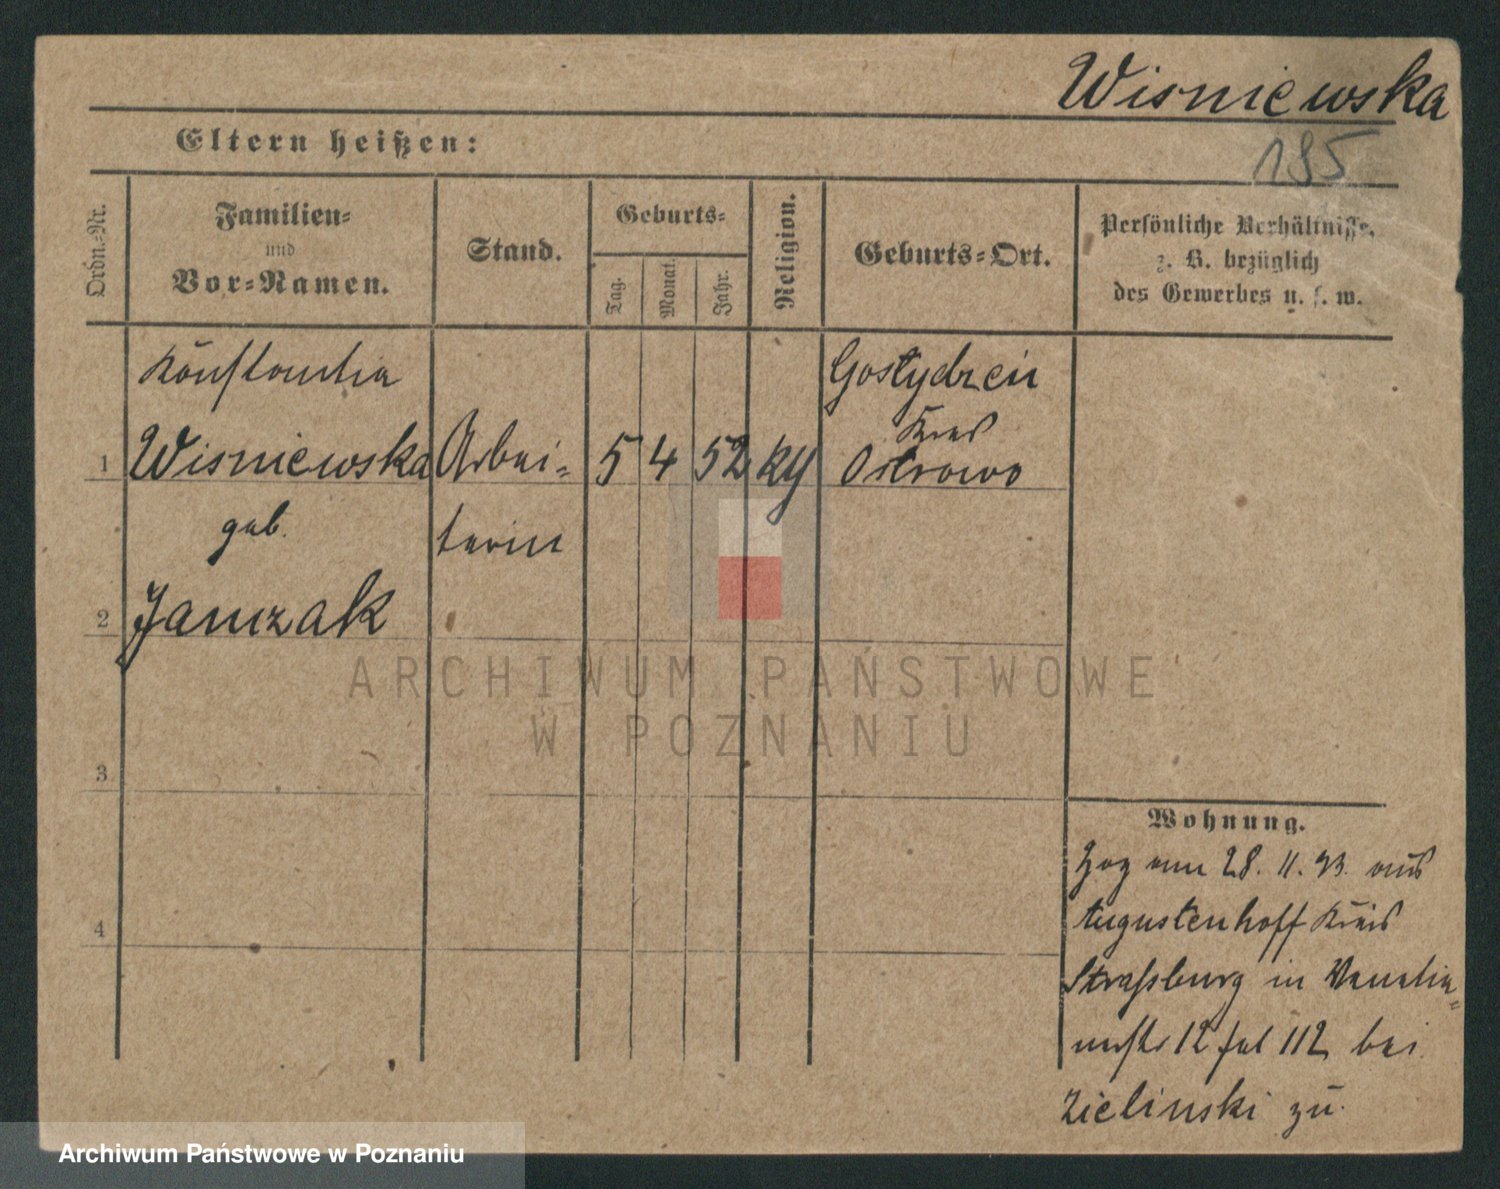 Wisniewska
195
Eltern heißen:
Ordn.-Nr.
Familien-
und
Vor-Namen.
Stand.
Geburts-
Tag.
Monat.
Jahr.
Religion.
Geburts-Ort.
Persönliche Verhältnisse,
z. B. bezüglich
des Gewerbes u. s. w.
Konstantia
Gostydzein
Kreis
1 Wisniewska Arbei- 5 4 52 Ostrowo
geb. terin
2 Janczak
3
4
Wohnung.
Zog am 28. 11. 93. aus
Augustenhoff Kreis
Strassburg in Venetia-
nerstr 12 bei
Zielinski zu.
ARCHIWUM PAŃSTWOWE
W POZNANIU
Archiwum Państwowe w Poznaniu